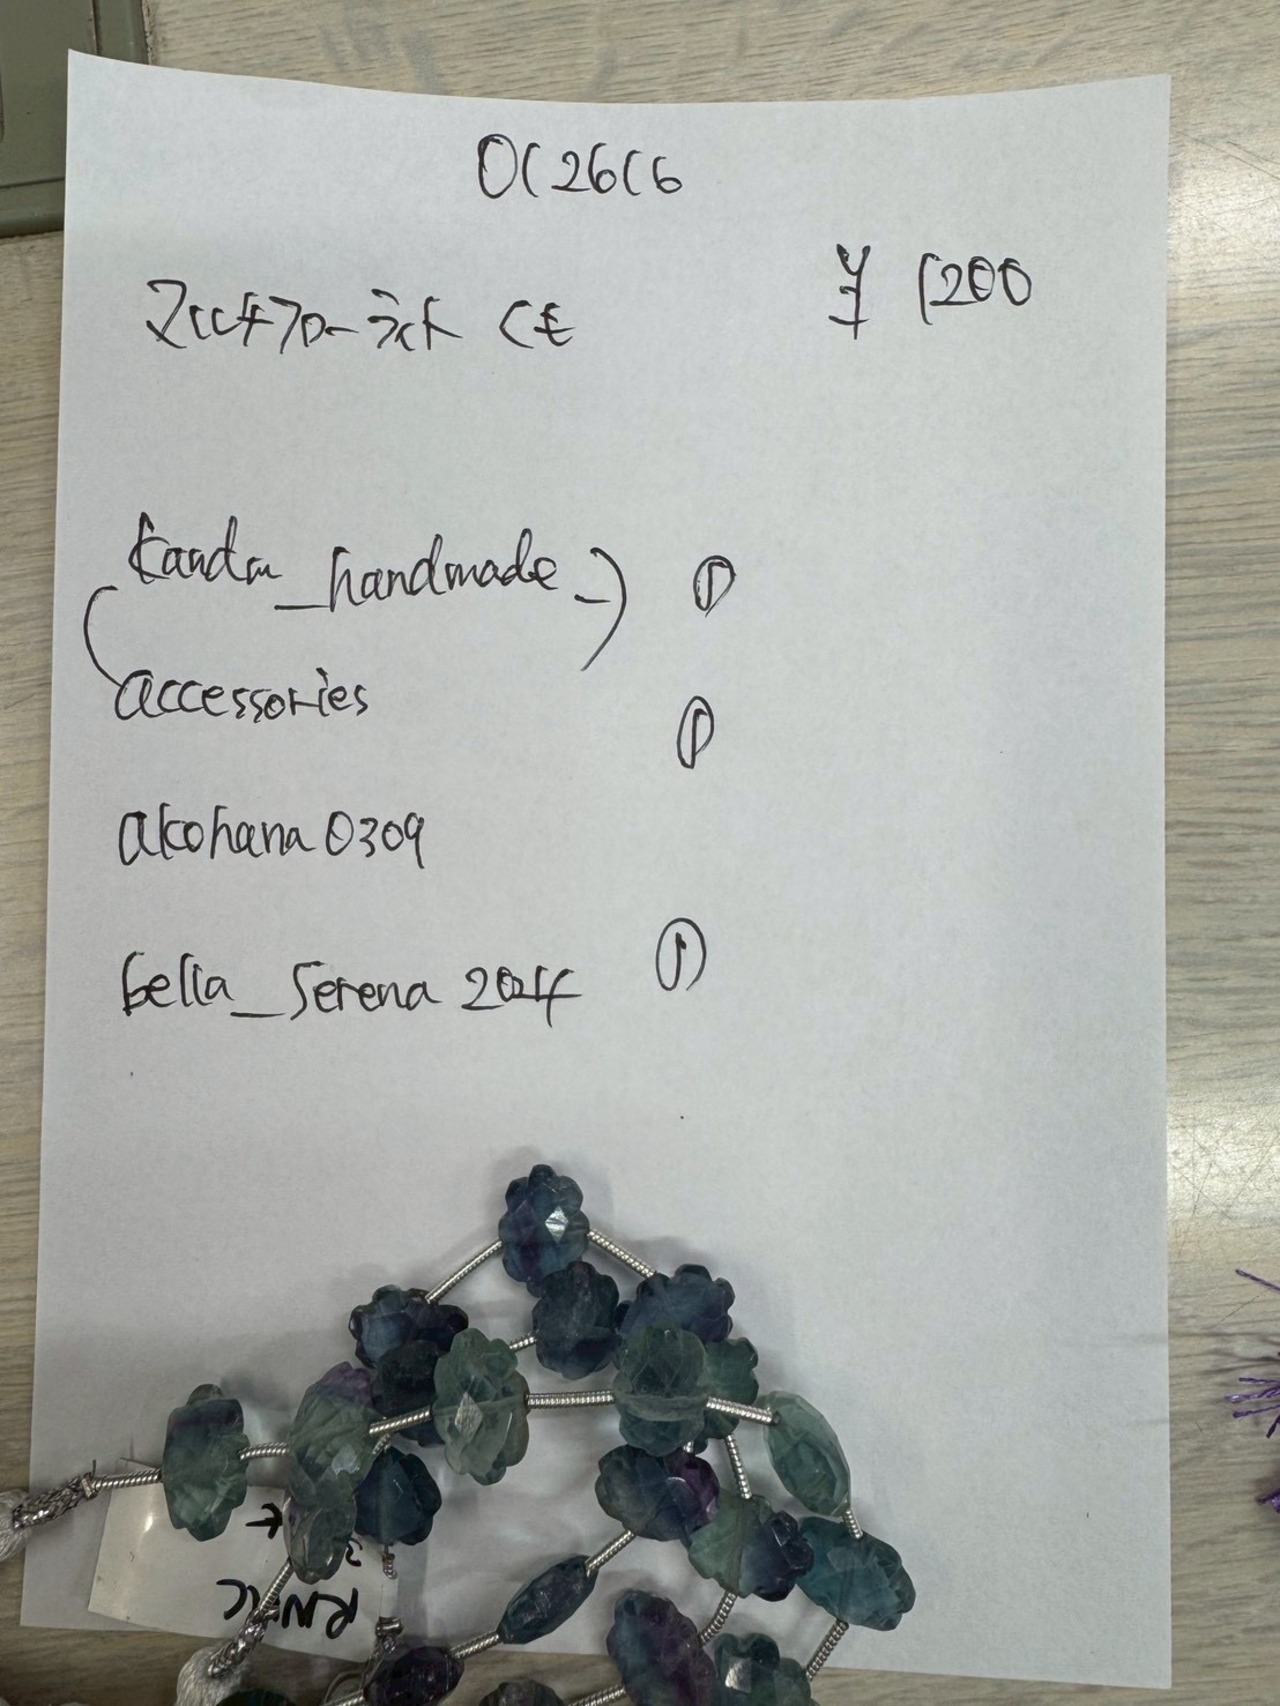 012616
マルチフローライト CE
¥ 1200
(kandm_handmade_) ①
accessories ①
akohana0309
bella_serena2024 ①